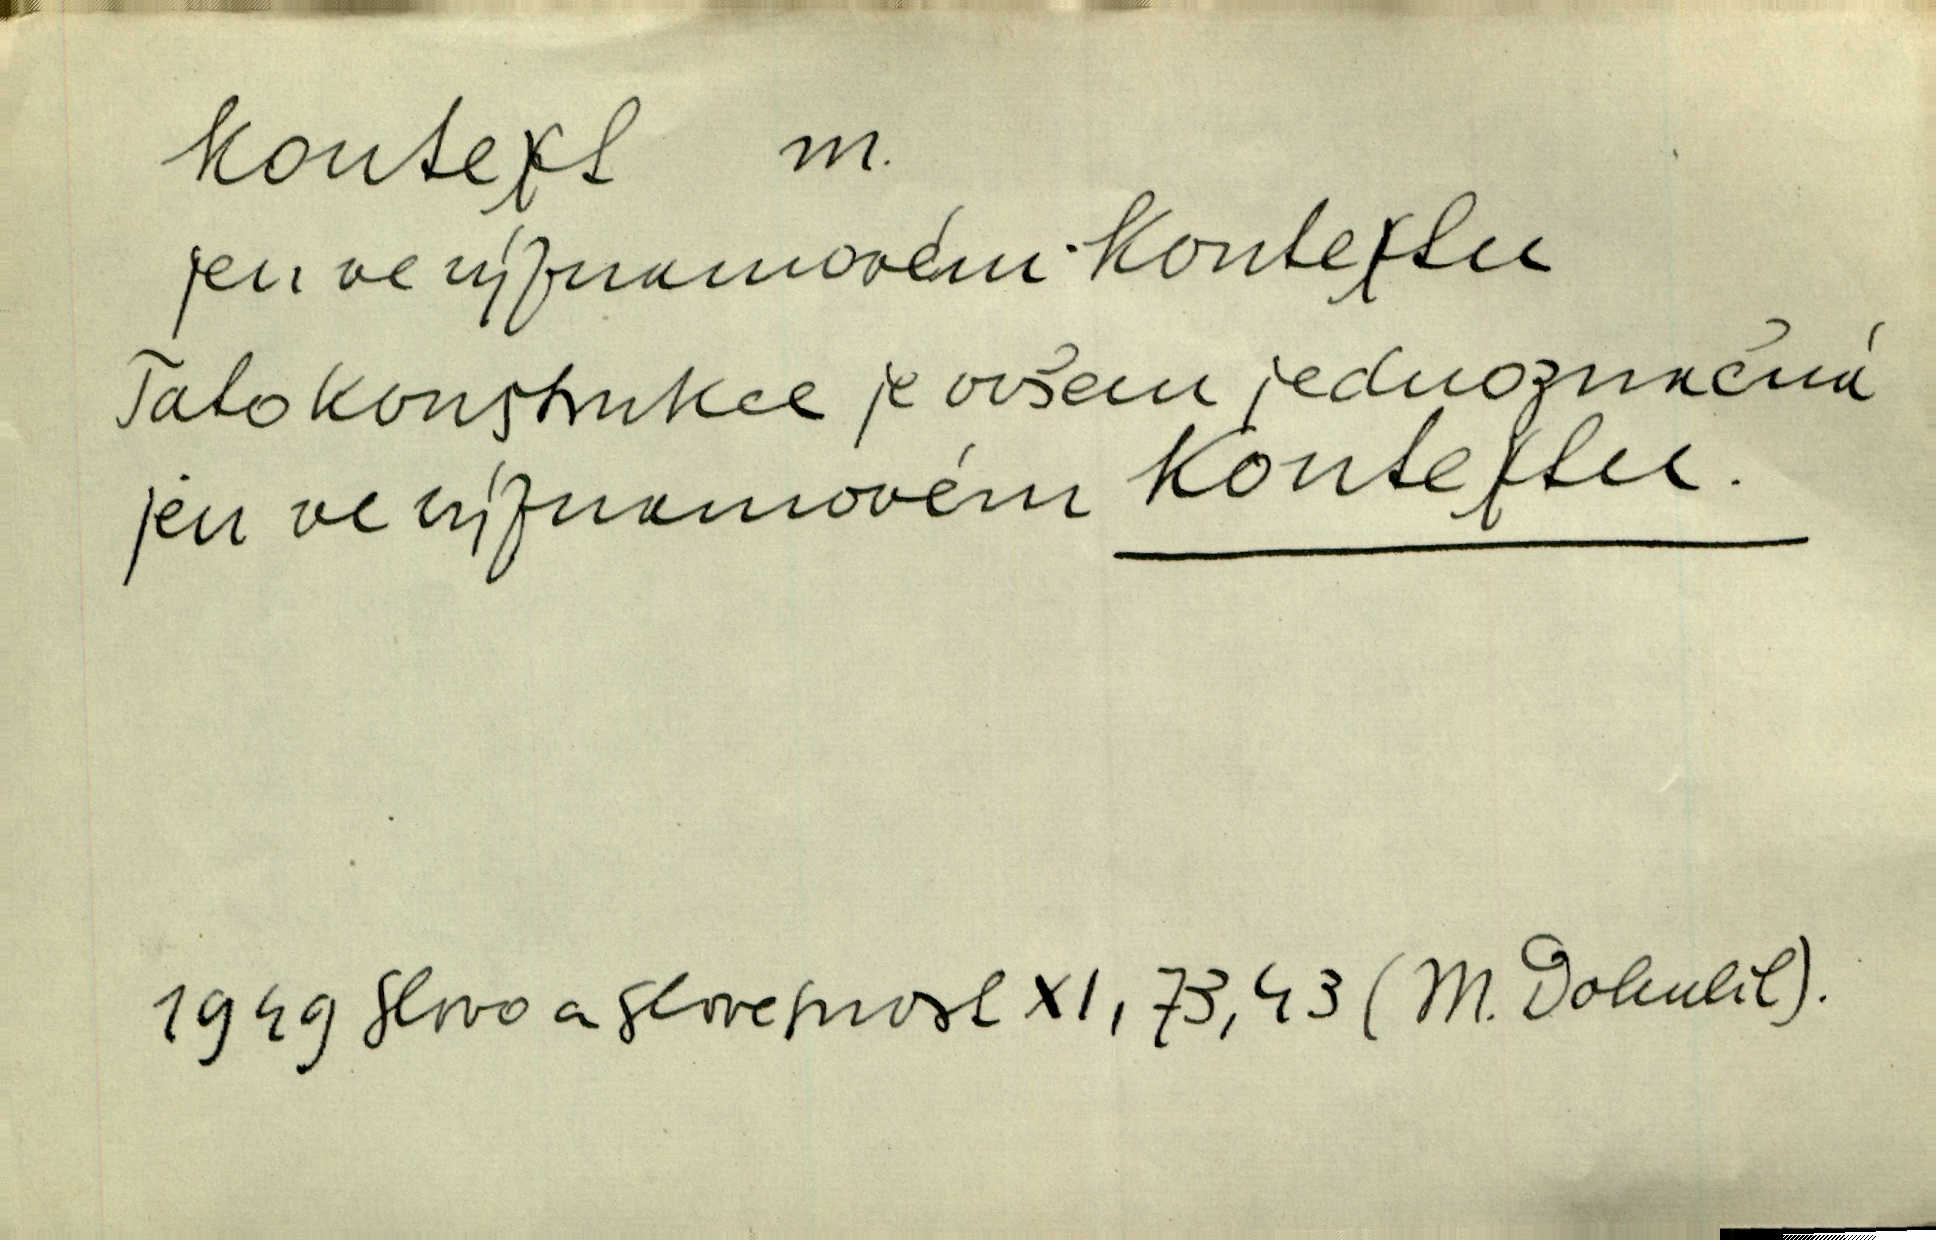 kontext m.
jen ve významovém kontextu
Tato konstrukce je ovšem jednoznačná
jen ve významovém kontextu.
1949 Slovo a slovesnost XI, 73, 43 (M. Dokulil).